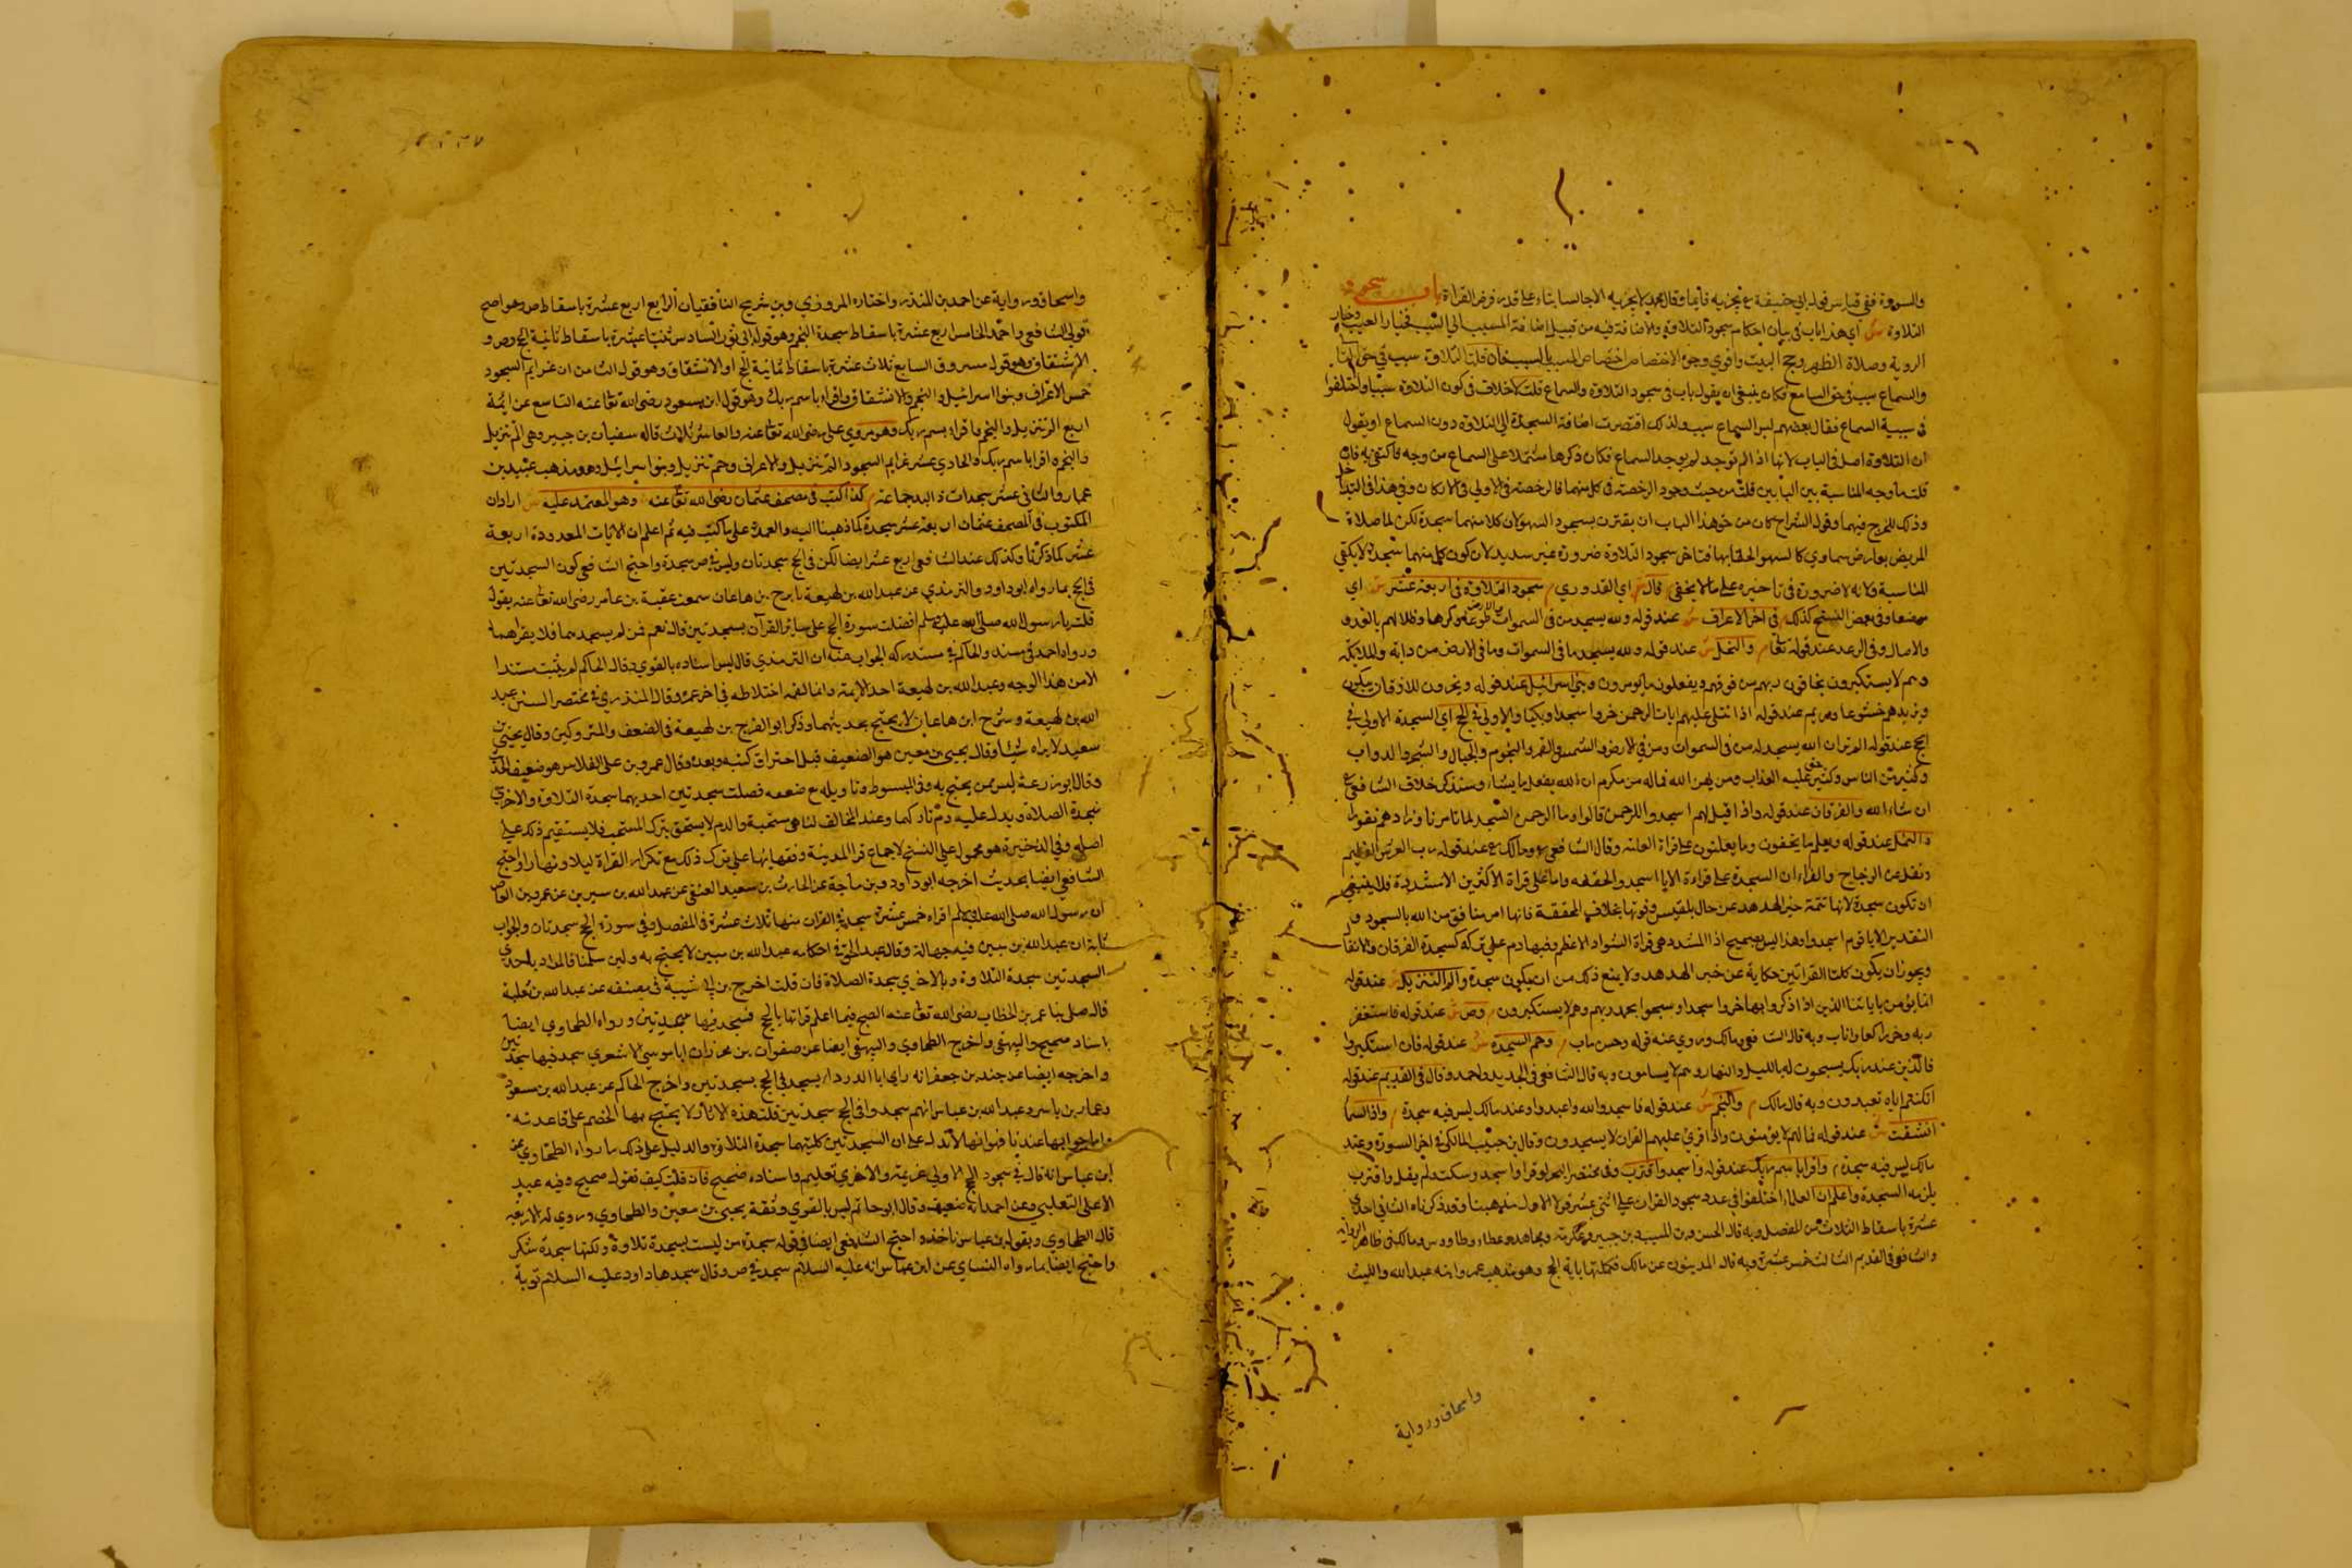 والسورة ففي قياس قول ابي حنيفة ع يجزيه قائما وقال محمد لا يجزيه الا جالسا بناء على قدر فرض القراءة باب سجود
التلاوة ش اي هذا باب في بيان احكام سجود التلاوة والاضافة فيه من قبيل اضافة المسبب الي السبب كخيار العيب وخيار
الروية وصلاة الظهر وحج البيت واقوي وجوه الاختصاص اختصاص المسبب بالسبب فان قلت التلاوة سبب في حق التالي
والسماع سبب في حق السامع فكان ينبغي ان يقول باب في سجود التلاوة والسماع قلت لا خلاف في كون التلاوة سببا واختلفوا
في سببية السماع فقال بعضهم ليس السماع سببا ولذلك اقتصرت اضافة السجدة الي التلاوة دون السماع او يقول
ان التلاوة اصل في الباب لانها اذا لم توجد لم يوجد السماع فكان ذكرها مشتملا على السماع من وجه فاكتفي به فان
قلت ما وجه المناسبة بين البابين قلت من حيث وجود الرخصة في كل منهما فالرخصة في الاولي في الاركان وفي هذا في التداخل
وذلك للحرج فيهما وقول الشراح كان من حق هذا الباب ان يقترن بسجود السهو لان كلا منهما سجدة لكن لما صلاة
المريض بعارض سماوي كالسهو الحقتها بها فتاخر سجود التلاوة ضرورة غير سديد لان كون كل منهما سجدة لا يكفي
للمناسبة ولانه لا ضرورة في تاخيره على ما لا يخفي قال ش اي القدوري م سجود التلاوة في اربعة عشر ش اي
موضعا وفي بعض النسخ كذلك م في اخر الاعراف ش عند قوله ولله يسجد من في السموات والارض طوعا وكرها وظلالهم بالغدو
والاصال وفي الرعد عند قوله تعا م والنحل ش عند قوله ولله يسجد ما في السموات وما في الارض من دابة والملائكة
وهم لا يستكبرون يخافون ربهم من فوقهم ويفعلون ما يومرون وبني اسرائيل عند قوله ويخرون للاذقان يبكون
ويزيدهم خشوعا ومريم عند قوله اذا تتلى عليهم ايات الرحمن خروا سجدا وبكيا والاولي في الحج اي السجدة الاولي في
الحج عند قوله الم تر ان الله يسجد له من في السموات ومن في الارض والشمس والقمر والنجوم والجبال والشجر والدواب
وكثير من الناس وكثير حق عليه العذاب ومن يهن الله فما له من مكرم ان الله يفعل ما يشاء وسنذكر خلاف الشافعي ع
ان شاء الله والفرقان عند قوله واذا قيل لهم اسجدوا للرحمن قالوا وما الرحمن انسجد لما تامرنا وزادهم نفورا
والنمل عند قوله ويعلم ما يخفون وما يعلنون على قراة العامة وقال الشافعي ع ومالك ع عند قوله رب العرش العظيم
ونقل عن الزجاج والفراء ان السجدة على قراءة الايا اسجدوا لخففه واما على قراة الاكثرين الا مشددة فلا ينبغي
ان تكون سجدة لانها تتمة خبر الهدهد عن حال بلقيس وقومها بخلاف المخففة فانها امر مستانف من الله بالسجود و
التقدير الا يا قوم اسجدوا وهذا ليس بصحيح اذ المشدد هي قراة السواد الاعظم وفيها ذم على تركه كسجدة الفرقان والانشقاق
ويجوز ان يكون كلتا القراتين حكاية عن خبر الهدهد ولا يمنع ذلك من ان يكون سجدة والم التنزيل ش عند قوله
انما يؤمن باياتنا الذين اذا ذكروا بها خروا سجدا وسبحوا بحمد ربهم وهم لا يستكبرون م وص ش عند قوله فاستغفر
ربه وخر راكعا واناب وبه قال الشافعي ومالك وروي عنه قوله وحسن ماب م وحم السجدة ش عند قوله فان استكبروا
فالذين عند ربك يسبحون له بالليل والنهار وهم لا يسامون وبه قال الشافعي في الجديد واحمد وقال في القديم عند قوله
ان كنتم اياه تعبدون وبه قال مالك م والنجم ش عند قوله فاسجدوا لله واعبدوا وعند مالك ليس فيه سجدة م واذا السما
انشقت ش عند قوله فما لهم لا يؤمنون واذا قرئ عليهم القران لا يسجدون وقال بن حبيب المالكي في اخر السورة وعند
مالك ليس فيه سجدة م واقرا باسم ربك عند قوله واسجد واقترب وفي مختصر البحر لو قرا واسجد وسكت ولم يقل واقترب
يلزمه السجدة واعلم ان العلماء اختلفوا في عدد سجود القران على اثني عشر قولا الاول مذهبنا وقد ذكرناه الثاني احدي
عشرة باسقاط الثلاث من المفصل وبه قال الحسن وبن المسيب وبن جبير وعكرمة ومجاهد وعطاء وطاووس ومالك في ظاهر الرواية
والشافعي في القديم الثالث خمس عشرة وبه قال المدنيون عن مالك فكملتها باية الحج وهو مذهب عمر وابنه عبد الله والليث
واسحاق ورواية
واسحاق ورواية عن احمد بن المنذر واختاره المروزي وبن شريح الشافعيان الرابع اربع عشرة باسقاط ص وهو اصح
قولي الشافعي واحمد الخامس اربع عشرة باسقاط سجدة النجم وهو قول ابي ثور السادس ثنتا عشرة باسقاط ثانية الحج وص و
الانشقاق وهو قول مسروق السابع ثلاث عشرة باسقاط ثانية الحج والانشقاق وهو قول الثامن ان عزايم السجود
خمس الاعراف وبنوا اسرائيل والنجم والانشقاق واقراء باسم ربك وهو قول ابن مسعود رضى الله تعا عنه التاسع عن ايمة
اربع الم تنزيل والنجم واقراء بسم ربك وهو مروي علي رضى الله تعا عنه والعاشر ثلاث قاله سفيان بن جبير وهي الم تنزيل
والنجم واقرا باسم ربك والحادي عشر عزايم السجود الم تنزيل والاعراف وحم تنزيل وبنوا اسرائيل وهو مذهب عبيد بن
عمار والثاني عشر سجدات ذ البدجماعة م كذا كتب في مصحف عثمان رضى الله تعا عنه وهو المعتمد عليه ش اراد ان
المكتوب في المصحف عثمان اربعة عشر سجدة كما ذهبنا اليه والعمدة على ما كتب فيه ثم اعلم ان الايات المعدودة اربعة
عشر كما ذكرنا وكذلك عند الشافعي اربع عشر ايضا لكن في الحج سجدتان وليس في ص سجدة واحتج الشافعي كون السجدتين
في الحج بما رواه ابو داود والترمذي عن عبد الله بن لهيعة نا برح بن هاعان سمعت عقبة بن عامر رضى الله تعا عنه يقول
قلت يا رسول الله صلى الله عليه وسلم افضلت سورة الحج على سائر القرآن بسجدتين قال نعم فمن لم يسجدهما فلا يقراهما
ورواه احمد في مسنده والحاكم في مستدركه الجواب عنه ان الترمذي قال ليس اسناده بالقوي وقال الحاكم لم يثبت مسندا
الا من هذا الوجه وعبد الله بن لهيعة احد الايمة وانما نقمه اختلاطه في اخر عمره وقال المنذري في مختصر السنن عبد
الله بن لهيعة ومشرح ابن هاعان لا يحتج بحديثهما وذكر ابو الفرج بن لهيعة في الضعف والمتروكين وقال يحيى بن
سعيد لا يراه شيئا وقال يحيى بن معين هو الضعيف قبل احتراق كتبه وبعده وقال عمرو بن على الفلاس هو ضعيف الحد
وقال ابو زرعة ليس ممن يحتج به وفي المبسوط وتاويله مع ضعفه فصلت سجدتين احديهما سجدة التلاوة والاخري
سجدة الصلاة ويدل عليه ذم تاركهما وعند المخالف لنا هي مستحبة والذم لا يستحق بترك المستحب فلا يستقيم ذلك على
اصله وفي الذخيرة هو محمول على النسخ لاجماع قرا المدينة وفقهائها على ترك ذلك مع تكرار القراة ليلا ونهارا واحتج
الشافعي ايضا بحديث اخرجه ابو داود وبن ماجة عن الحارث بن سعيد العتقي عن عبد الله بن سيرين عن عمرو بن العاص
ان رسول الله صلى الله عليه وسلم اقراه خمس عشرة سجدة في القران منها ثلاث عشرة في المفصل وفي سورة الحج سجدتان والجواب
ثابة ان عبد الله بن سبين فيه جهالة وقال عبد الحق في احكامه عبد الله بن سبين لا يحتج به ولين سلمنا فالمراد باحدي
السجدتين سجدة التلاوة وبالاخري سجدة الصلاة فان قلت اخرج بن ابي شيبة في مصنفه عن عبد الله بن ثعلبة
قال صلى بنا عمر بن الخطاب رضى الله تعا عنه الصبح فيما اعلم قراتها بالحج فسجد فيها سجدتين ورواه الطحاوي ايضا
باسناد صحيح والبيهقي واخرج الطحاوي والبيهقي ايضا عن صفوان بن محرز ان ابا موسى الاشعري سجد فيها سجدتين
واخرجه ايضا عن جندب بن جعفر انه راي ابا الدرداء يسجد في الحج بسجدتين واخرج الحاكم عن عبد الله بن مسعود
وعمار بن ياسر وعبد الله بن عباس انهم سجدوا في الحج سجدتين قلت هذه الاثار لا يحتج بها الخصم على قاعدته
واما جوابها عندنا فهو انها لا تدل على ان السجدتين كليتهما سجدة التلاوة والدليل على ذلك ما رواه الطحاوي عن
ابن عباس انه قال في سجود الحج الاولي عزيمة والاخري تعليم واسناده صحيح فان قلت كيف تقول صحيح وفيه عبد
الاعلى الثعلبي وعن احمد انه ضعيف وقال ابو حاتم ليس بالقوي وثقة يحيى بن معين والطحاوي وروي له الاربعة
قال الطحاوي وبقول بن عباس ناخذ واحتج الشافعي ايضا في قوله سجدة ص ليست بسجدة تلاوة ولكنها سجدة شكر
واحتج ايضا بما رواه النساي عن ابن عباس انه عليه السلام سجد في ص وقال سجدها داود عليه السلام توبة